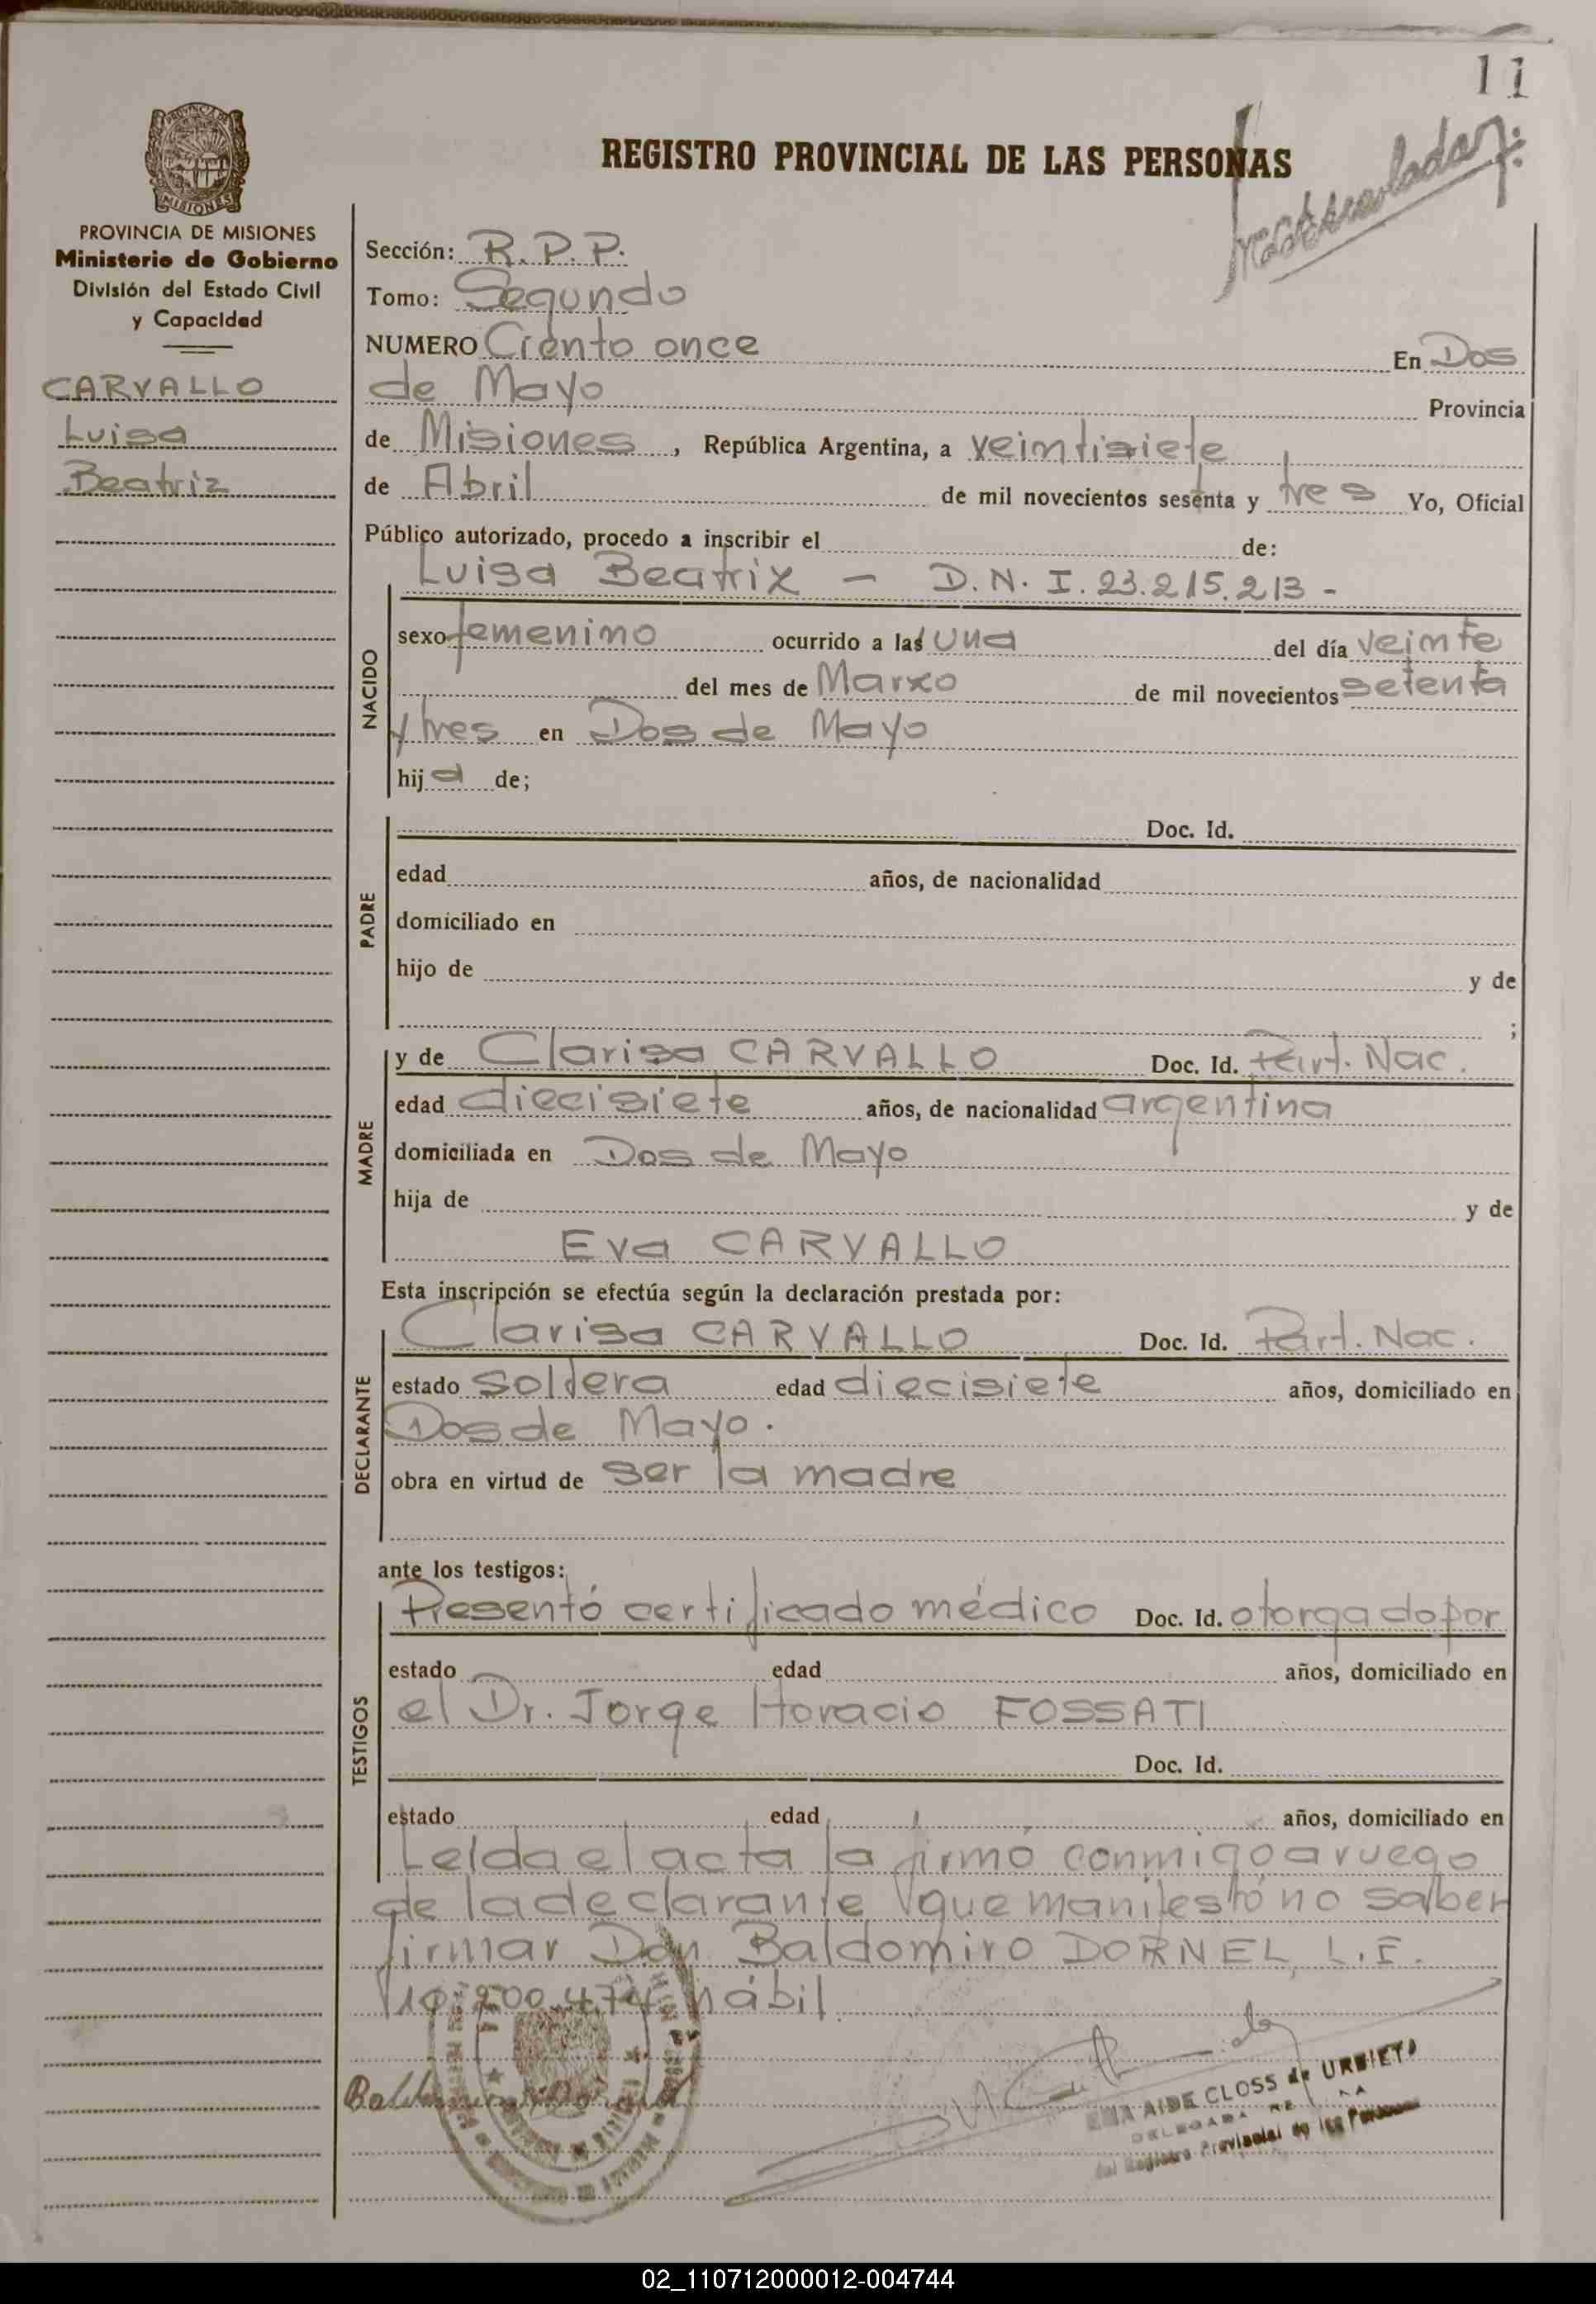 11
REGISTRO PROVINCIAL DE LAS PERSONAS
PROVINCIA DE
MISIONES
PROVINCIA DE MISIONES
Ministerio de Gobierno
División del Estado Civil
y Capacidad
CARVALLO
Luisa
Beatriz
Sección: R.P.P.
Tomo: Segundo
NUMERO Ciento once En Dos
de Mayo Provincia
de Misiones, República Argentina, a veintisiete
de Abril de mil novecientos sesenta y tres Yo, Oficial
Público autorizado, procedo a inscribir el de:
Luisa Beatriz - D.N.I. 23.215.213 -
NACIDO
sexo femenino ocurrido a las una del día veinte
del mes de Marzo de mil novecientos setenta
y tres en Dos de Mayo
hija de;
PADRE
Doc. Id.
edad años, de nacionalidad
domiciliado en
hijo de y de
;
MADRE
y de Clarisa CARVALLO Doc. Id. Part. Nac.
edad diecisiete años, de nacionalidad argentina
domiciliada en Dos de Mayo
hija de y de
Eva CARVALLO
Esta inscripción se efectúa según la declaración prestada por:
DECLARANTE
Clarisa CARVALLO Doc. Id. Part. Nac.
estado soltera edad diecisiete años, domiciliado en
Dos de Mayo.
obra en virtud de ser la madre
ante los testigos:
TESTIGOS
Presentó certificado médico Doc. Id. otorgado por
estado edad años, domiciliado en
el Dr. Jorge Horacio FOSSATI
Doc. Id.
estado edad años, domiciliado en
Leída el acta la firmó conmigo a ruego
de la declarante que manifestó no saber
firmar Don Baldomiro DORNEL, L.E.
10.200.474, hábil
AIDE CLOSS de URBIETA
DELEGADA
del Registro Provincial de las Personas
02_110712000012-004744